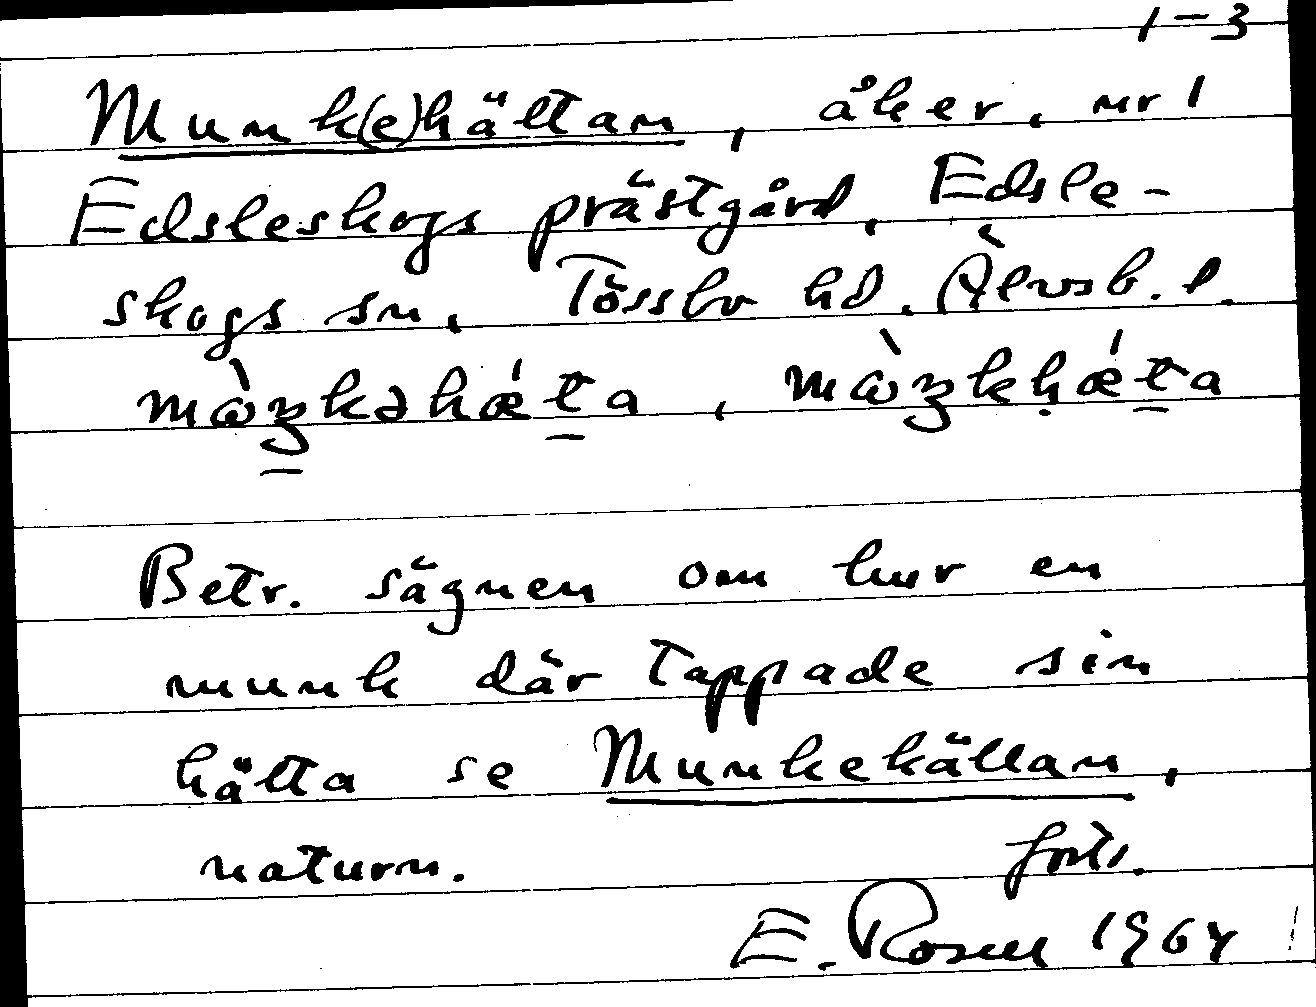 1-3
Munk(e)hättan, åker, nr 1
Edsleskogs prästgård, Edsle-
skogs sn, Tössbo hd. Älvsb. l.
mὼʒkəhǽt̠a, mὼʒkḥǽt̠a
Betr. sägnen om hur en
munk där tappade sin
hätta se Munkekällan,
naturn. forts.
E. Rosell 1964